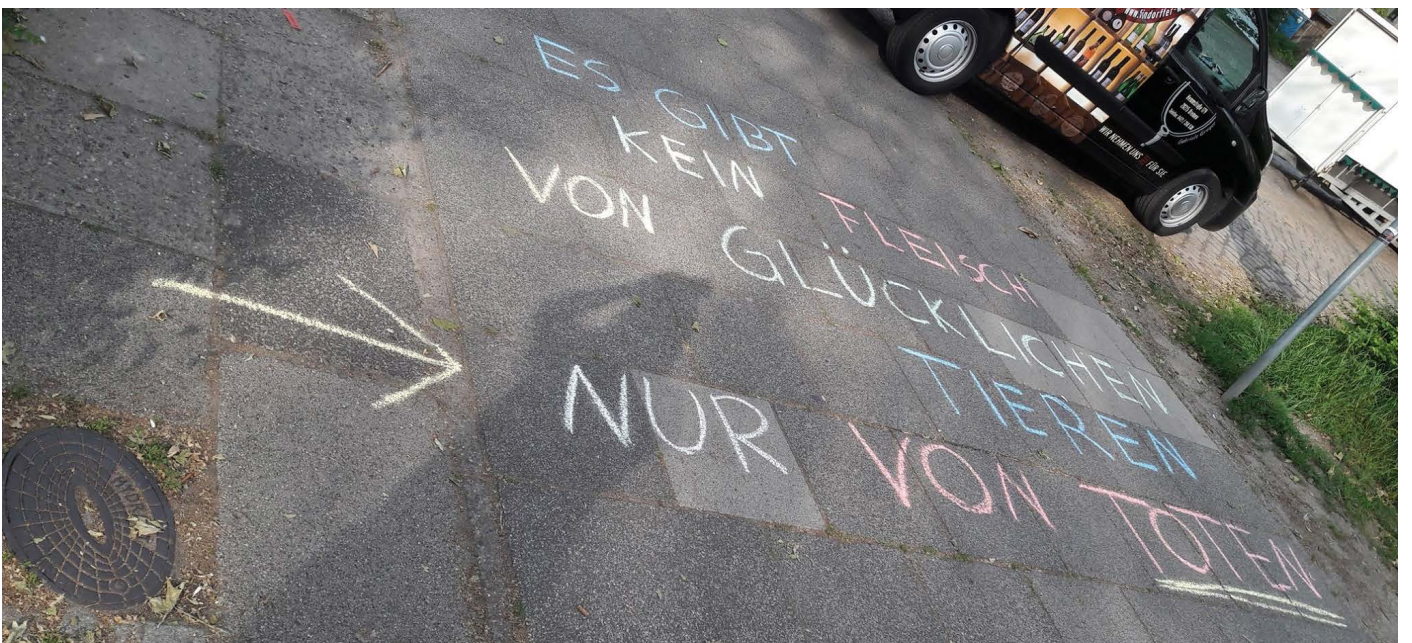 ES GIBT
KEIN FLEISCH
VON GLÜCKLICHEN
TIEREN
NUR VON TOTEN
WIR NEHMEN UNS FÜR SIE